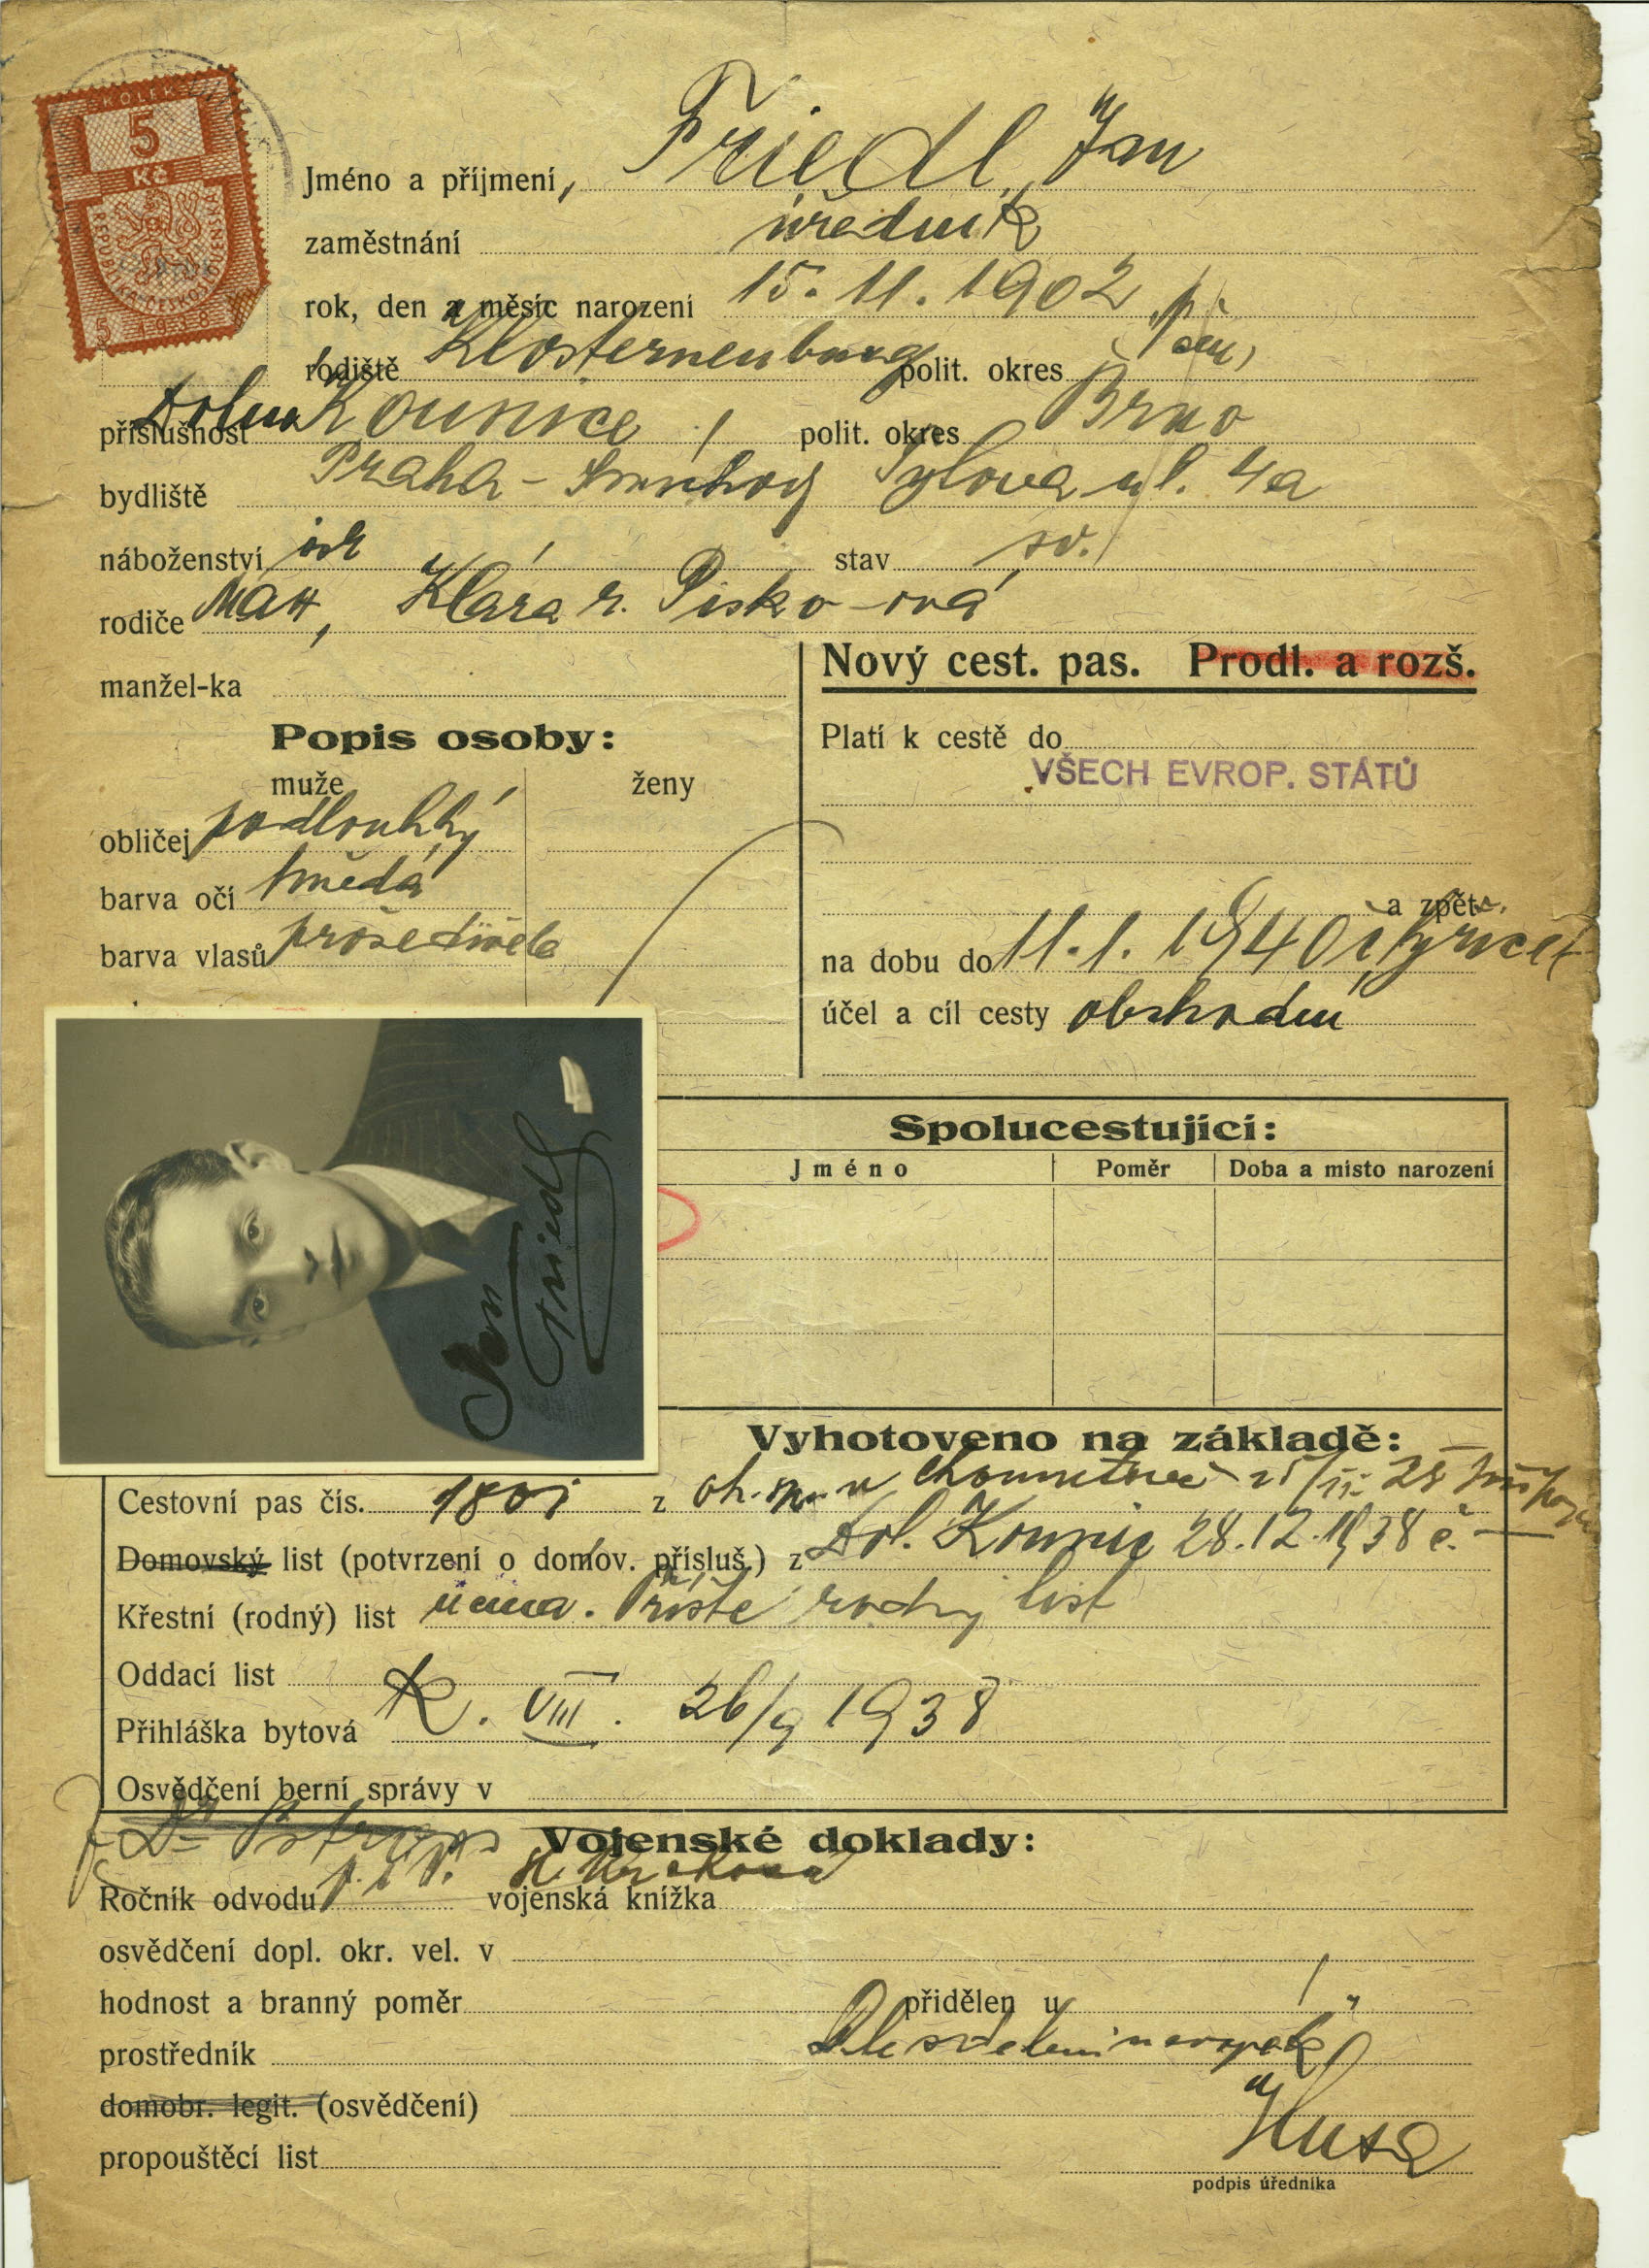 KOLEK
5
Kč
REPUBLIKA ČESKOSLOVENSKÁ
5 1938
Jméno a příjmení, Friedl Jan
zaměstnání úředník
rok, den a měsíc narození 15. 11. 1902
rodiště Klosterneuburg polit. okres
příslušnost Dolní Kounice polit. okres Brno
bydliště Praha - Smíchov Tylova ul. 4a
náboženství stav sv.
rodiče Max, Klára r. Pisko-ová
manžel-ka
Nový cest. pas. Prodl. a rozš.
Popis osoby:
muže ženy
obličej podlouhlý
barva očí hnědá
barva vlasů prošedivělé
Platí k cestě do
VŠECH EVROP. STÁTŮ
a zpět
na dobu do 11. 1. 1940 čtyřicet
účel a cíl cesty obchodní
Jan
Friedl
Spolucestující:
Jméno Poměr Doba a místo narození
Vyhotoveno na základě:
Cestovní pas čís. 1801 z
Domovský list (potvrzení o domov. přísluš.) z Dol. Kounic 28. 12. 1938 č. —
Křestní (rodný) list nema. Příště rodný list
Oddací list
Přihláška bytová VIII. 26/9 1938
Osvědčení berní správy v
Vojenské doklady:
Ročník odvodu vojenská knížka
osvědčení dopl. okr. vel. v
hodnost a branný poměr přidělen u
prostředník
domobr. legit. (osvědčení)
propouštěcí list
podpis úředníka